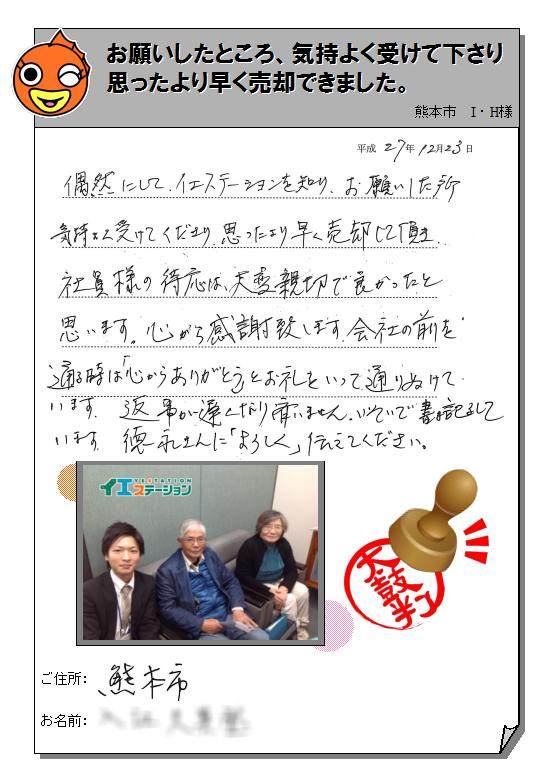 お願いしたところ、気持よく受けて下さり
思ったより早く売却できました。
熊本市 I・H様
平成 27年 12月23日
偶然にして、イエステーションを知り、お願いした所
気持よく受けてくださり、思ったより早く売却して頂き、
社員様の待応は、大変親切で良かったと
思います。心から感謝致します。会社の前を
通る時は「心からありがとう」とお礼をいって通りぬけて
います。返事が遅くなり済いません。いそいで書き記して
います。徳永さんに「よろしく」伝えてください。
YESTATION
イエステーション
太鼓判
ご住所: 熊本市
お名前: